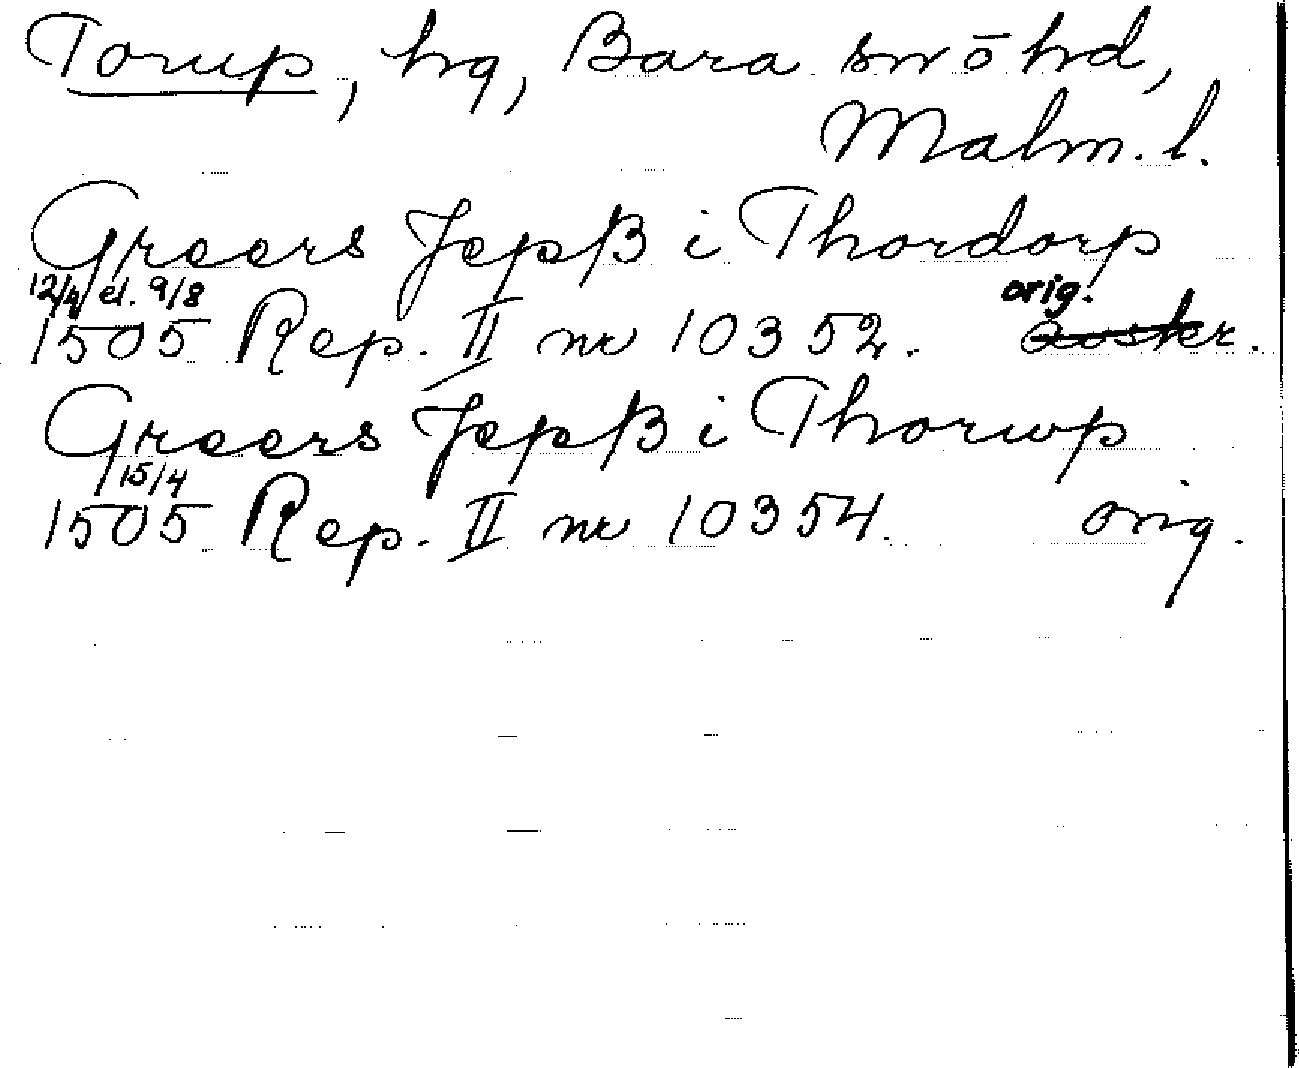 Torup, hg, Bara sn ō hd,
Malm. l.
Greers Jepß i Thordorp
12/4 el. 9/8 orig.
1505 Rep. II nr 10352.
Greers Jepß i Thorwp
15/4
1505 Rep. II nr 10354. orig.